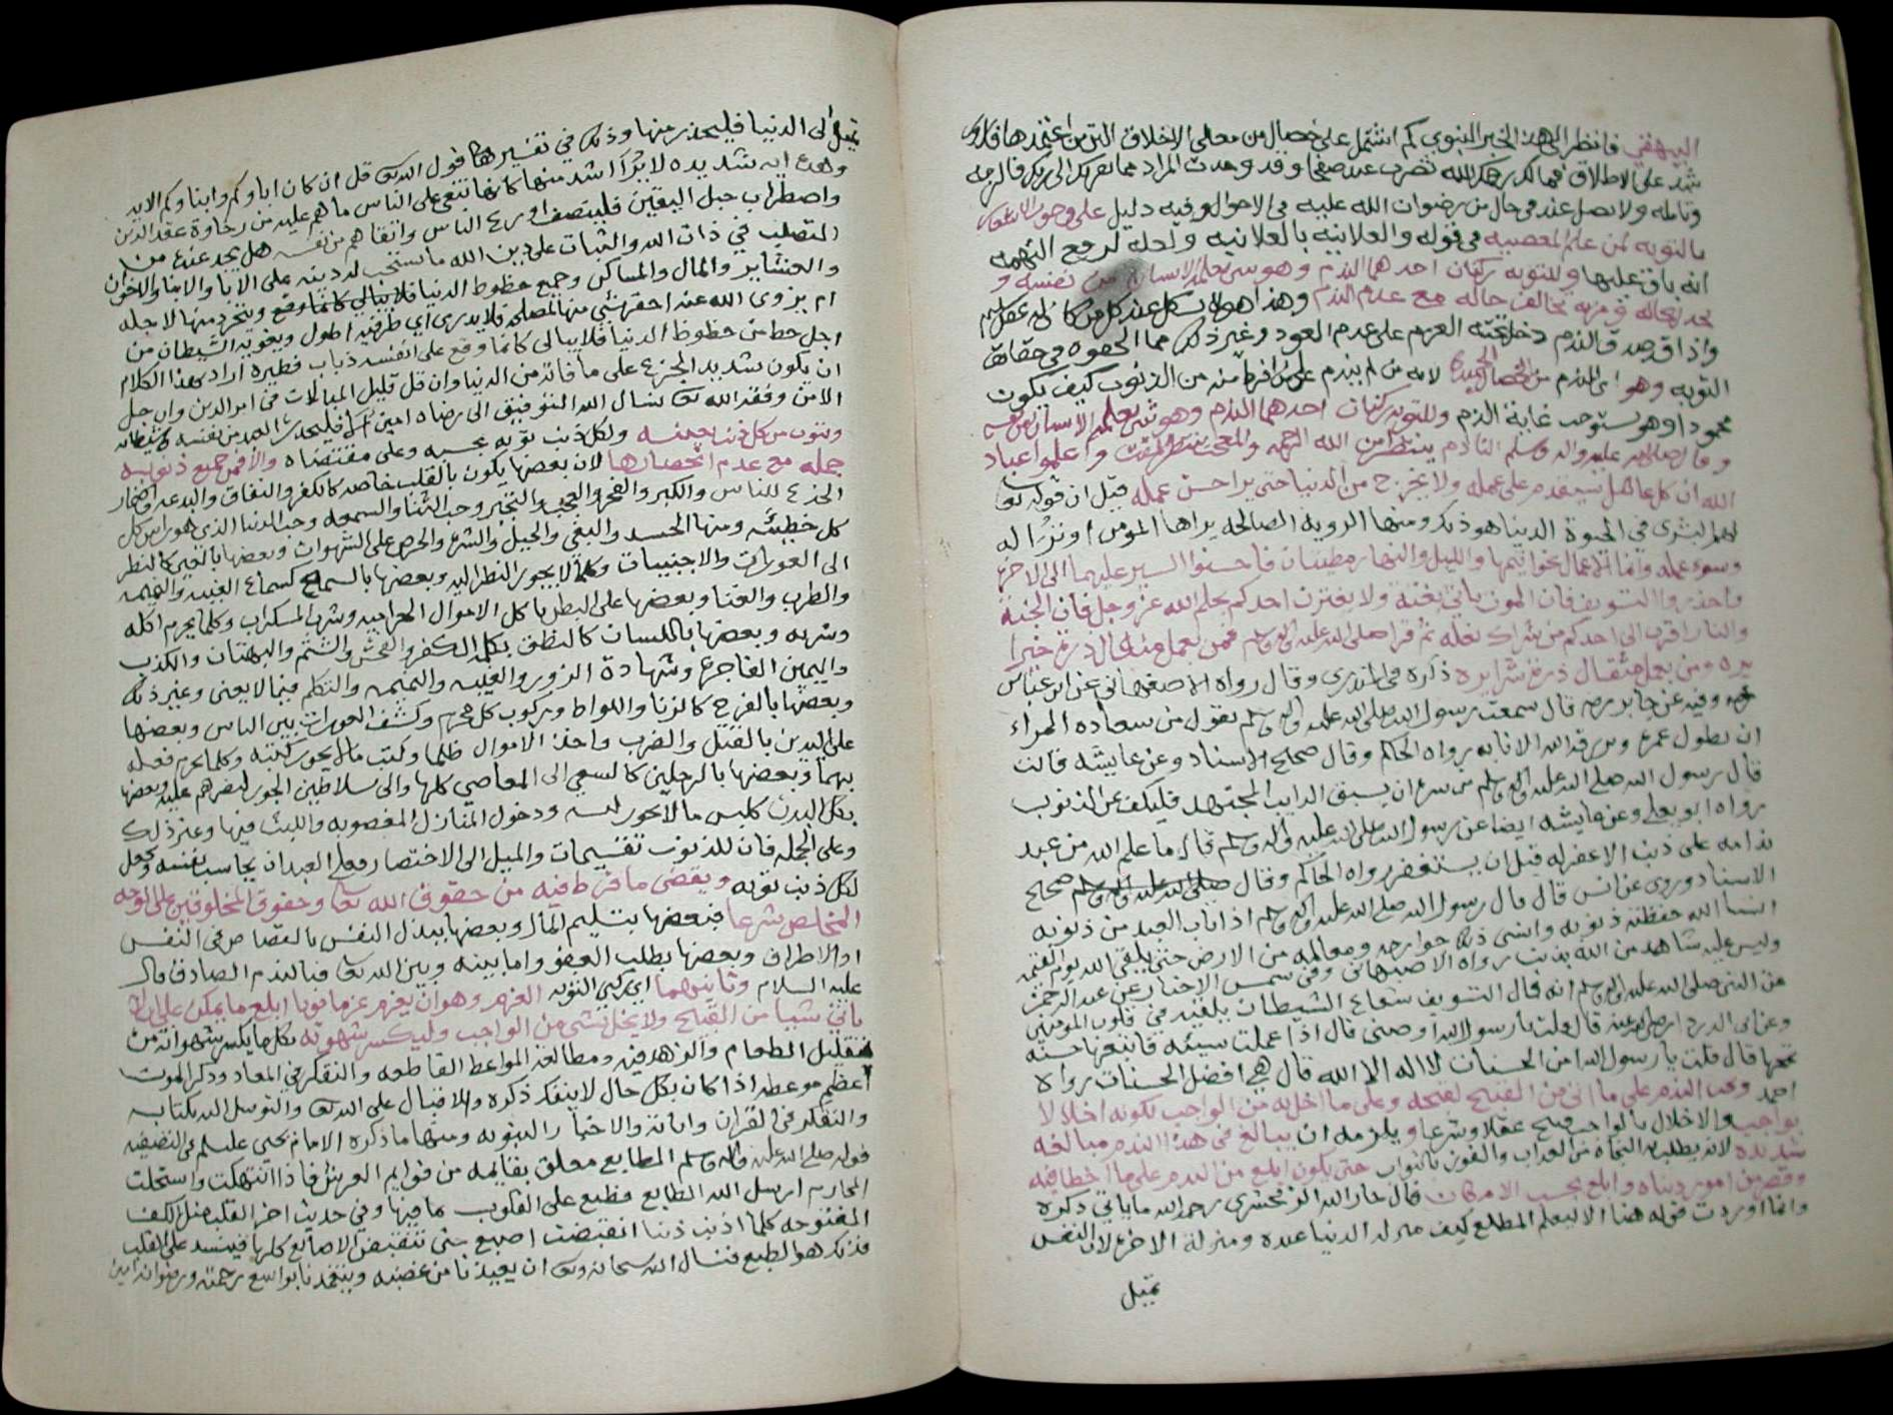 البيهقي فانظر الى هذا الخبر النبوي كم اشتمل على خصال من معالي الاخلاق التي من اعتمدها فقد
شد على الاطلاق فمالك رحمك الله تضرب عنه صفحا وقد وجدت المراد مما يقربك الى ربك فالزمه
وتامله ولا تصل عنه في حال من رضوان الله عليه في الاحوال وفيه دليل على وجوب الاشعار
بالتوبة لمن علم المعصيه في قوله والعلانيه بالعلانيه ولعله لرجع التهمه
انه باق عليها وللتوبه ركنان احدهما الندم وهو شي يعلمه الانسان من نفسه و
يجد لحاله مزيه تخالف حاله مع عدم الندم وهذا لا يشكل عند كل من كان له عقل سليم
واذا قد صدق الندم دخل تحته العزم على عدم العود وغير ذلك مما الحقوه في حقائق
التوبه وهو اي الندم من الخصال الحميدة لانه من لم يندم على ما فرط منه من الذنوب كيف يكون
محمودا وهو يستوجب غاية الذم وللتوبه ركنان احدهما الندم وهو شي يعلمه الانسان من نفسه
وقال صلى الله عليه واله وسلم النادم ينتظر من الله الرحمه والمعجب ينتظر المقت واعلموا عباد
الله ان كل عامل سيقدم على عمله ولا يخرج من الدنيا حتى يرا حسن عمله قيل ان قوله تعالى
لهم البشرى في الحيوة الدنيا هو ذلك ومنها الرويه الصالحه يراها المومن او ترا له
وسوء عمله وانما الاعمال بخواتيمها والليل والنهار مطيتان فاحسنوا السير عليهما الى الاخرة
واحذروا التسويف فان الموت ياتي بغتة ولا يغترن احدكم بحلم الله عز وجل فان الجنة
والنار اقرب الى احدكم من شراك نعله ثم قرا صلى الله عليه واله وسلم فمن يعمل مثقال ذرة خيرا
يره ومن يعمل مثقال ذرة شرا يره ذكره في المنذري وقال رواه الاصفهاني عن ابن عباس
وفيه عن جابر قال سمعت رسول الله صلى الله عليه واله وسلم يقول من سعاده المراء
ان يطول عمره ويرزقه الله الانابه رواه الحاكم وقال صحيح الاسناد وعن عايشه قالت
قال رسول الله صلى الله عليه واله وسلم من سره ان يسبق الدايب المجتهد فليكف عن الذنوب
رواه ابو يعلى وعن عايشه ايضا عن رسول الله صلى الله عليه واله وسلم قال ما علم الله من عبد
ندامه على ذنب الا غفر له قبل ان يستغفر رواه الحاكم وقال صلى الله عليه واله وسلم صحيح
الاسناد وروى عن انس قال قال رسول الله صلى الله عليه واله وسلم اذا تاب العبد من ذنوبه
انسا الله حفظته ذنوبه وانسى ذلك جوارحه ومعالمه من الارض حتى يلقى الله يوم القيمه
وليس عليه شاهد من الله بذنب رواه الاصبهاني وفي شمس الاخبار عن عبد الرحمن
عن النبي صلى الله عليه واله وسلم انه قال التسويف شعاع الشيطان يلقيه في قلوب المومنين
وعن ابي الدرداء رضي الله عنه قال قلت يا رسول الله اوصني قال اذا عملت سيئه فاتبعها حسنه
تمحها قال قلت يا رسول الله امن الحسنات لا اله الا الله قال هي افضل الحسنات رواه
احمد وعن الندم على ما اتى من القبيح لقبحه وعلى ما اخل به من الواجب لكونه اخلالا
بواجب والاخلال بالواجب قبيح عقلا وشرعا ويلزمه ان يبالغ في هذا الندم مبالغه
شديده لانه يطلب النجاة من العذاب والفوز بالثواب حتى يكون ابلغ من الندم على ما اخطا فيه
وقصر من امور دنياه وابلغ بحسب الامكان قال جار الله الزمخشري رحمه الله ما ياتي ذكره
وانما اوردت قوله هنا الا ليعلم المطلع كيف منزلة الدنيا عنده ومنزلة الاخرة لان النفس
تميل
تميل الى الدنيا فليحذر منها وذلك في تفسير هذا قول الله تعالى قل ان كان اباوكم وابناوكم الايه
وهذه ايه شديده لا ترا اشد منها كانها تنعى على الناس ما هم عليه من رخاوة عقد الدين
واضطراب حبل اليقين فلينصف اورع الناس واتقاهم من نفسه هل يجد عنده من
التصلب في ذات الله والثبات على دين الله ما يستحب له دينه على الابا والابنا والاخوان
والعشاير والمال والمساكن وجميع حظوظ الدنيا ويتجرد منها لاجله
ام يزوي الله عنه احقر شي منها لمصلحه فلا يدري اي طرفيه اطول ويغويه الشيطان عن
اجل حظ من حظوظ الدنيا فلا يبالي كانما وقع على انفسه ذباب فطيره اراد بهذا الكلام
ان يكون شديد الجزع على ما فاته من الدنيا وان قل قليل المبالات في امر الدين وان جل
الامن وفقه الله تعالى نسال الله التوفيق الى رضاه امين
ويتوب من كل ذنب بعينه ولكل ذنب توبه بحسبه وعلى مقتضاه والا فمن جميع ذنوبه
جمله مع عدم انحصارها لان بعضها يكون بالقلب خاصه كالكفر والنفاق والبدعه واضمار
الخدع للناس والكبر والفخر والعجب والتجبر وحب الثنا والسمعه وحب الدنيا الذي هو راس كل
خطيئه ومنها الحسد والبغي والبخل والشره والحرص على الشهوات وبعضها بالعين كالنظر
الى العورات والاجنبيات وكلما لا يجوز النظر اليه وبعضها بالسماع كسماع الغيبه والنميمه
والطرب والغنا وبعضها على البطن باكل الاموال الحراميه وشرب المسكرات وكلما يحرم اكله
وشربه وبعضها باللسان كالنطق بكلمة الكفر والفحش والشتم والبهتان والكذب
واليمين الفاجره وشهادة الزور والغيبه والنميمه والتكلم فيما لا يعني وغير ذلك
وبعضها بالفرج كالزنا واللواط وركوب كل محرم وكشف العورات بين الناس وبعضها
على اليدين بالقتل والضرب واخذ الاموال ظلما وكتب ما لا يجوز كتبه وكلما يحرم فعله
بهما وبعضها بالرجلين كالسعي الى المعاصي كلها والى سلاطين الجور وبعضها
بكل البدن كلبس ما لا يجوز لبسه ودخول المنازل المغصوبه واللبث فيها وغير ذلك
وعلى الجمله فان للذنوب تقسيمات والميل الى الاختصار فعلى العبد ان يحاسب نفسه ويجعل
لكل ذنب توبه ويقضي ما فرط فيه من حقوق الله تعالى وحقوق المخلوقين على الوجه
المخلص شرعا فبعضها بتسليم المال وبعضها ببذل النفس بالقصاص في النفس
او الاطراف وبعضها بطلب العفو واما بينه وبين الله تعالى فبالندم الصادق قال
عليه السلام وثانيهما اي ركني التوبه العزم وهو ان يعزم عزما قويا ابلغ ما يمكن على ان لا
ياتي شيا من القبيح ولا يخل بشي من الواجب وليكسر شهوته بكل ما يكسر شهواته من
تقليل الطعام والزهد فيه ومطالعة المواعظ القاطعه والتفكر في المعاد وذكر الموت
اعظم موعظه اذا كان بكل حال لا ينفك ذكره والاقبال على الله تعالى والتوسل اليه بكتابه
والتفكر في القران واياته والاخبار النبويه ومنها ما ذكره الامام يحيى عليه السلام في التصفيه
قوله صلى الله عليه واله وسلم الطابع معلق بقايمه من قوايم العرش فاذا انتهكت واستحلت
المحارم ارسل الله الطابع فطبع على القلوب بما فيها وفي حديث اخر القلب مثل الكف
المفتوحه كلما اذنب ذنبا انقبضت اصبع حتى تنقبض الاصابع كلها فيشد على القلب
فذلك هو الطبع فنسال الله سبحانه وتعالى ان يعيذنا من غضبه ويتغمدنا بواسع رحمته ورضوانه امين